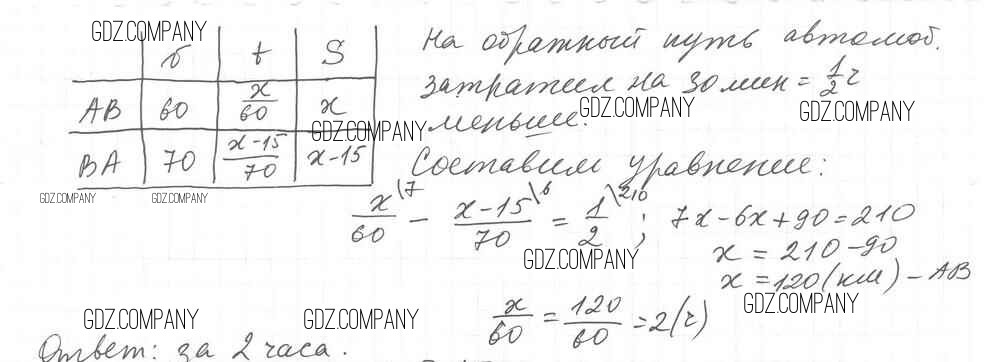 GDZ.COMPANY
υ t S
AB 60 x/60 x
BA 70 x-15/70 x-15
на обратный путь автомоб.
затратил на 30 мин = 1/2 ч
GDZ.COMPANY GDZ.COMPANY
меньше.
GDZ.COMPANY
Составим уравнение:
GDZ.COMPANY GDZ.COMPANY
x\7/60 - x-15\6/70 = 1\210/2 ; 7x-6x+90=210
x = 210-90
x = 120(км) - AB
GDZ.COMPANY
GDZ.COMPANY
x/60 = 120/60 = 2(ч)
GDZ.COMPANY GDZ.COMPANY
Ответ: за 2 часа.